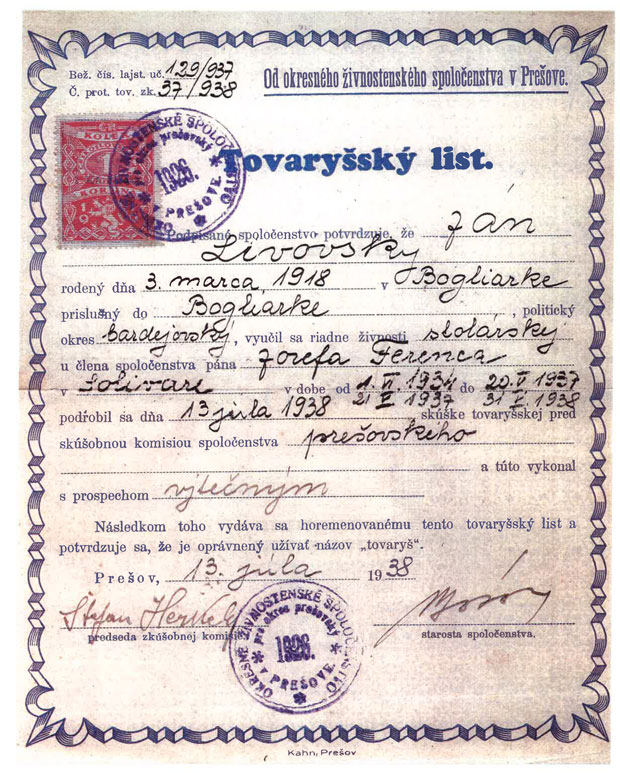 Bež. čís. lajst. uč. 129/937
Č. prot. tov. zk. 37/938
Od okresného živnostenského spoločenstva v Prešove.
Tovaryšský list.
OKRESNÉ ŽIVNOSTENSKÉ SPOLOČENSTVO
pre okres prešovský
1926.
V PREŠOVE
Podpísané spoločenstvo potvrdzuje, že Ján
Livovský
rodený dňa 3. marca, 1918 v Bogliarke
príslušný do Bogliarke, politický
okres bardejovský, vyučil sa riadne živnosti stolárský
u člena spoločenstva pána Jozefa Ferenca
v Solivare v dobe od 1. VI. 1934 do 20. V 1937
1937 1938
podrobil sa dňa 13 júla 1938 skúške tovaryšskej pred
skúšobnou komisiou spoločenstva prešovského
a túto vykonal
s prospechom výtečným
Následkom toho vydáva sa horemenovanému tento tovaryšský list a
potvrdzuje sa, že je oprávnený užívať názov „tovaryš“.
Prešov, 13. júla 1938
Štefan
predseda zkúšobnej komisie
starosta spoločenstva.
OKRESNÉ ŽIVNOSTENSKÉ SPOLOČENSTVO
pre okres prešovský
1926.
V PREŠOVE
Kahn, Prešov